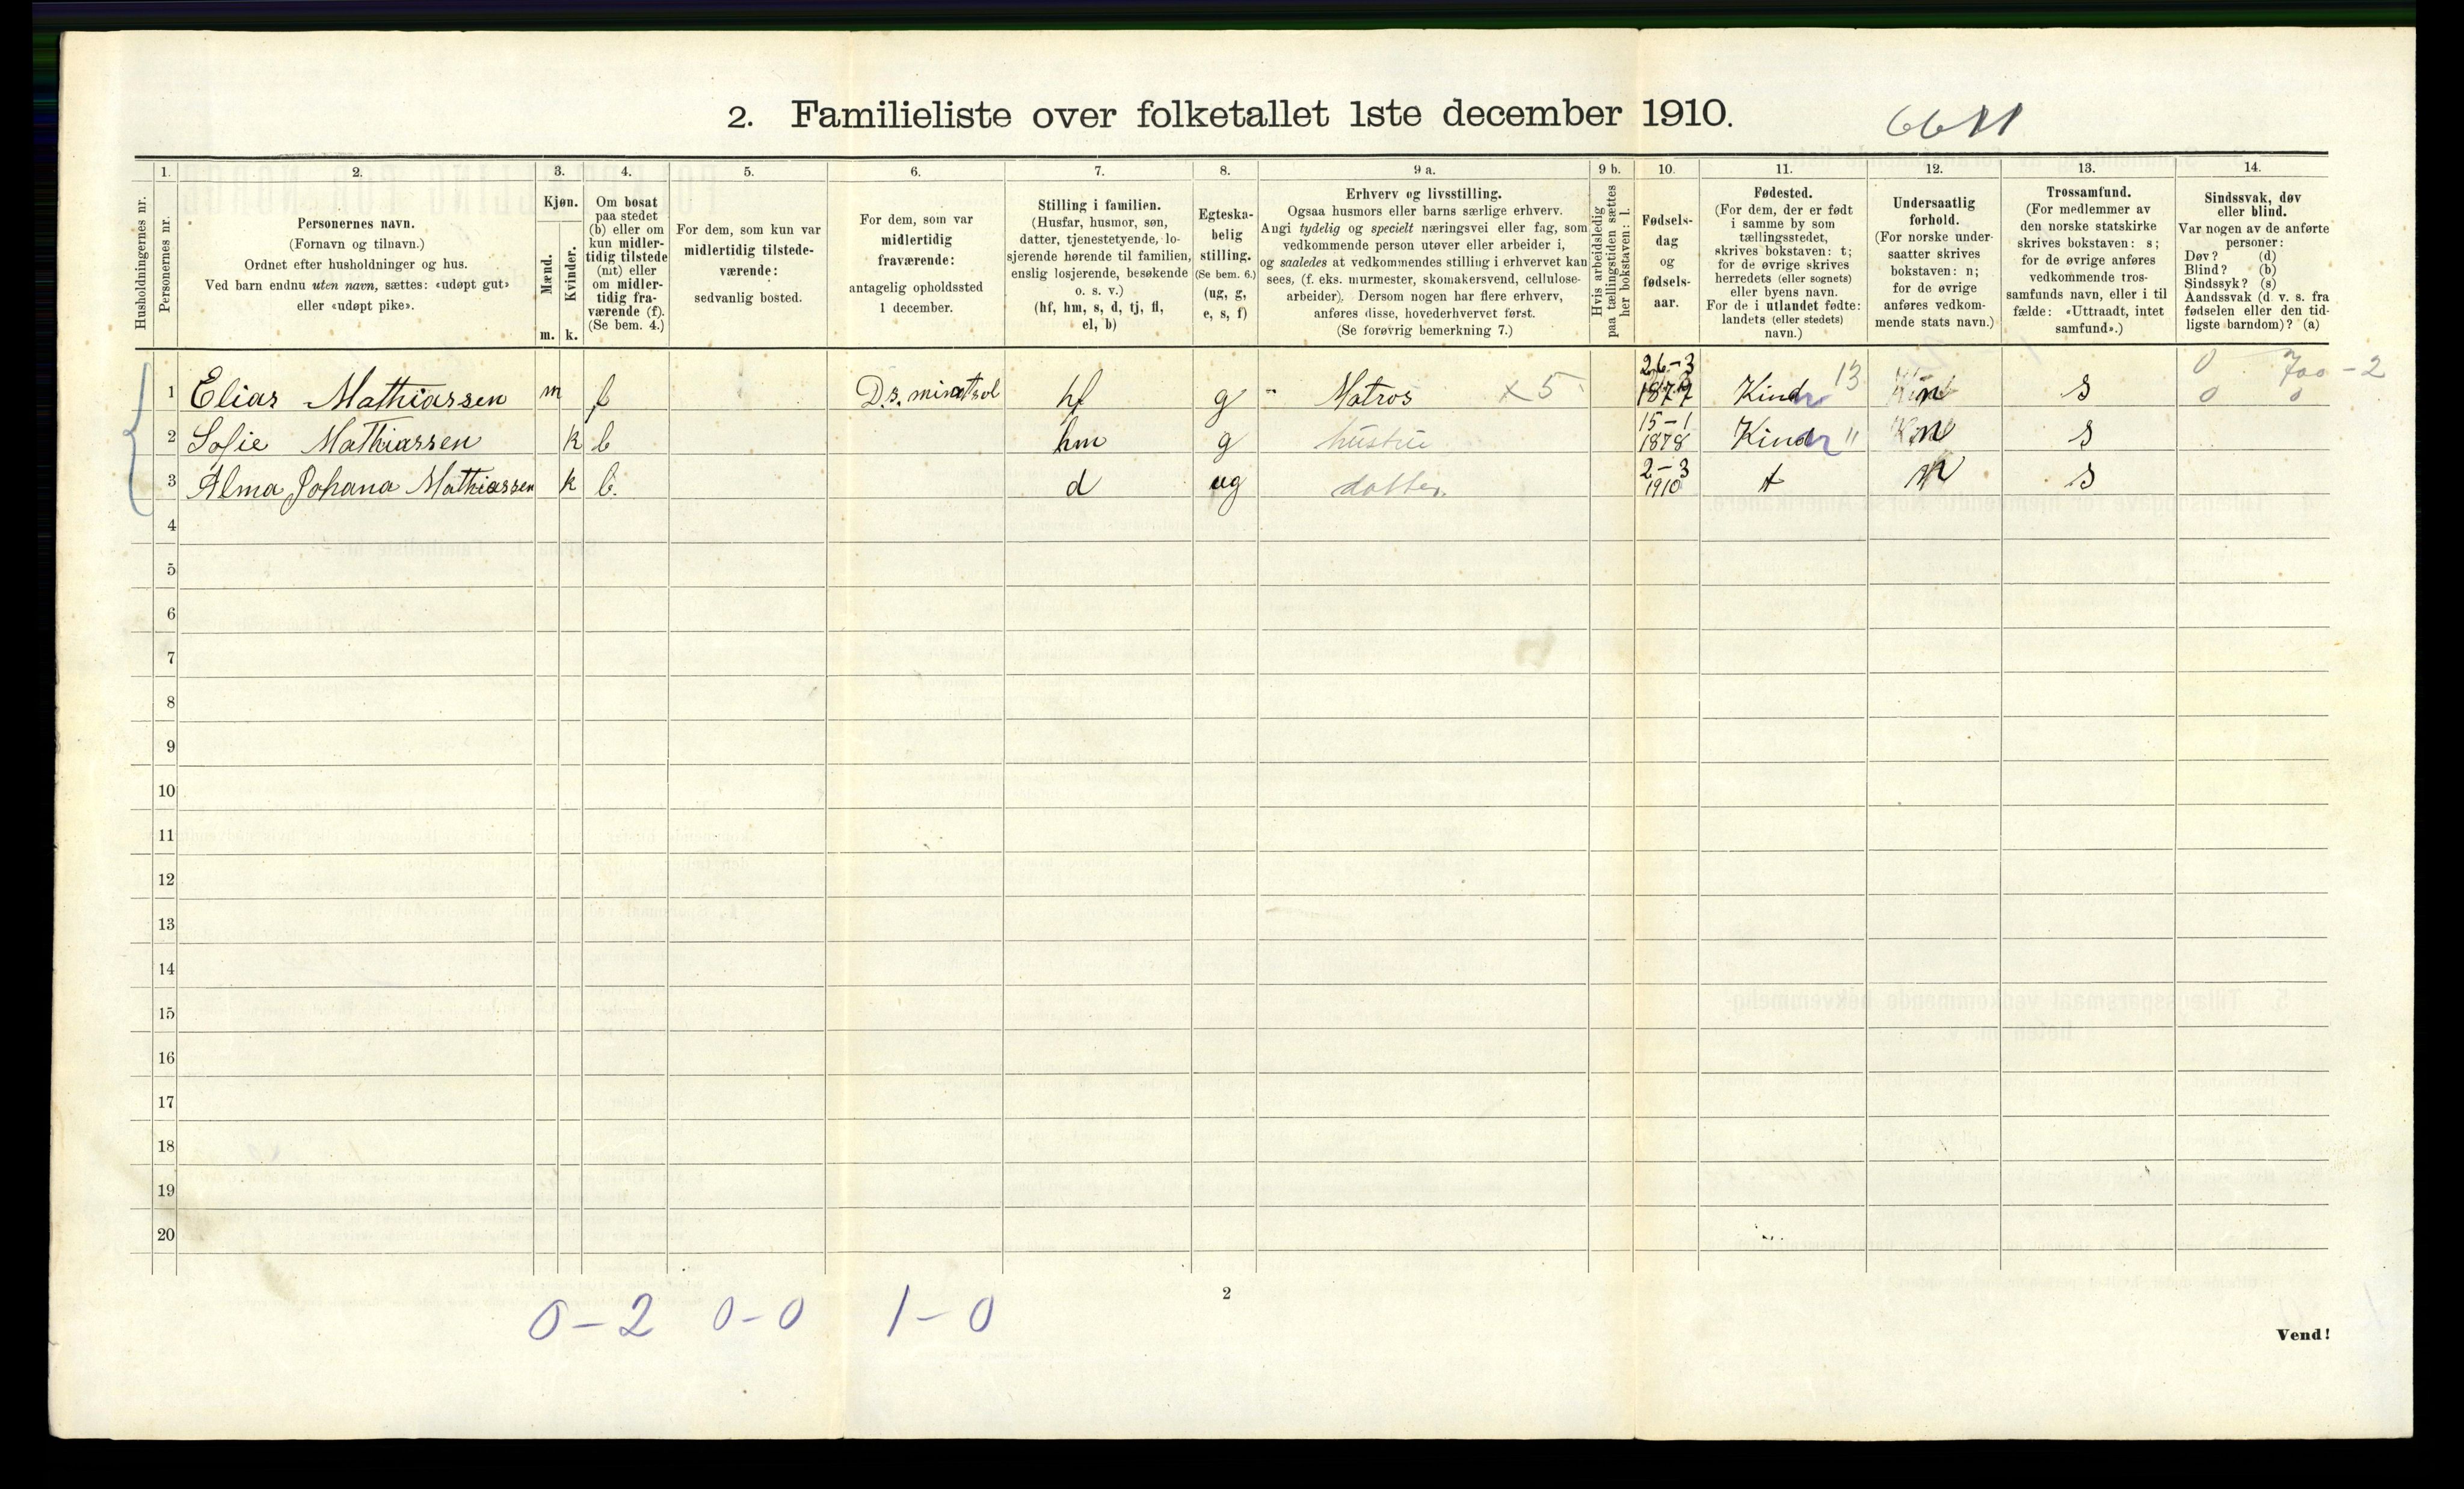 2. Familieliste over folketallet 1ste december 1910.
6611
1. 2. 3. 4. 5. 6. 7. 8. 9 a. 9 b. 10. 11. 12. 13. 14.
Husholdningernes nr.
Personernes nr.
Personernes navn.
(Fornavn og tilnavn.)
Ordnet efter husholdninger og hus.
Ved barn endnu uten navn, sættes: «udøpt gut»
eller «udøpt pike».
Kjøn.
Mænd.
Kvinder.
m. k.
Om bosat
paa stedet
(b) eller om
kun midler-
tidig tilstede
(mt) eller
om midler-
tidig fra-
værende (f).
(Se bem. 4.)
For dem, som kun var
midlertidig tilstede-
værende:
sedvanlig bosted.
For dem, som var
midlertidig
fraværende:
antagelig opholdssted
1 december.
Stilling i familien.
(Husfar, husmor, søn,
datter, tjenestetyende, lo-
sjerende hørende til familien,
enslig losjerende, besøkende
o. s. v.)
(hf, hm, s, d, tj, fl,
el, b)
Egteska-
belig
stilling.
(Se bem. 6.)
(ug, g,
e, s, f)
Erhverv og livsstilling.
Ogsaa husmors eller barns særlige erhverv.
Angi tydelig og specielt næringsvei eller fag, som
vedkommende person utøver eller arbeider i,
og saaledes at vedkommendes stilling i erhvervet kan
sees, (f. eks. murmester, skomakersvend, cellulose-
arbeider). Dersom nogen har flere erhverv,
anføres disse, hovederhvervet først.
(Se forøvrig bemerkning 7.)
Hvis arbeidsledig
paa tællingstiden sættes
her bokstaven: l.
Fødsels-
dag
og
fødsels-
aar.
Fødested.
(For dem, der er født
i samme by som
tællingsstedet,
skrives bokstaven: t;
for de øvrige skrives
herredets (eller sognets)
eller byens navn.
For de i utlandet fødte:
landets (eller stedets)
navn.)
Undersaatlig
forhold.
(For norske under-
saatter skrives
bokstaven: n;
for de øvrige
anføres vedkom-
mende stats navn.)
Trossamfund.
(For medlemmer av
den norske statskirke
skrives bokstaven: s;
for de øvrige anføres
vedkommende tros-
samfunds navn, eller i til
fælde: «Uttraadt, intet
samfund».)
Sindssvak, døv
eller blind.
Var nogen av de anførte
personer:
Døv? (d)
Blind? (b)
Sindssyk? (s)
Aandssvak (d. v. s. fra
fødselen eller den tid-
ligste barndom)? (a)
0 700 - 2
26-3
1 Elias Mathiassen m f D.s. hf g - Matros x 5 Kind 13 n s 0 0
15-1
2 Sofie Mathiassen k b hm g hustru 1878 Kind " n s
2-3
3 Alma Johana Mathiassen k b. d ug datter 1910 t n s
4
5
6
7
8
9
10
11
12
13
14
15
16
17
18
19
20
2
0-2 0-0 1-0
Vend!